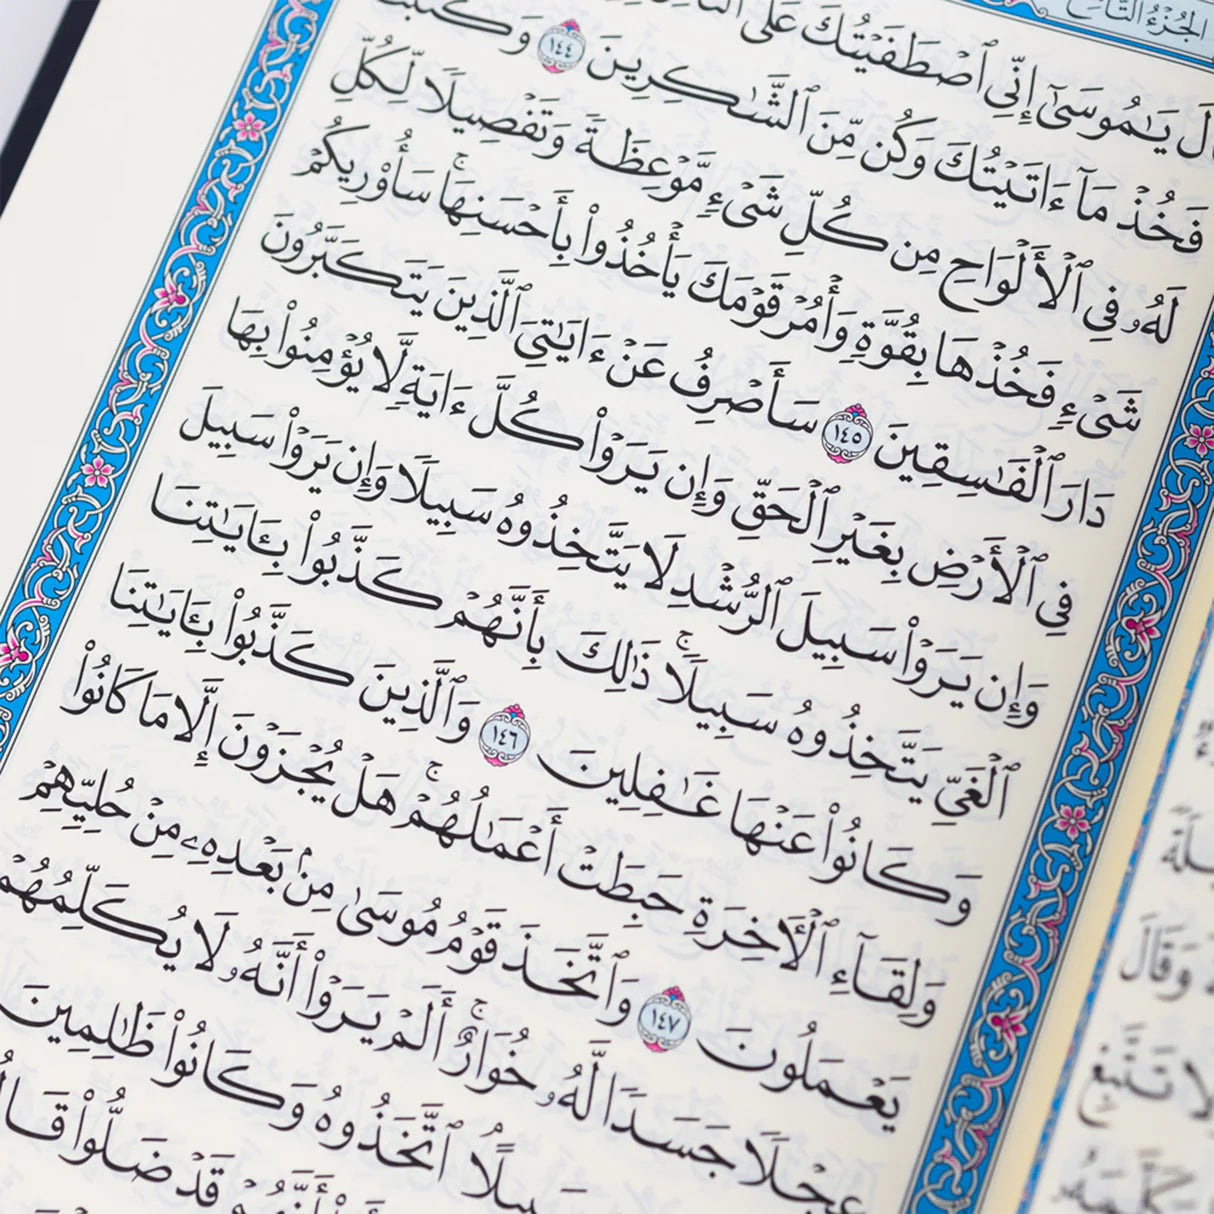 الجُزْءُ التَّاسِعُ
يَٰمُوسَىٰٓ إِنِّي ٱصۡطَفَيۡتُكَ عَلَى
فَخُذۡ مَآ ءَاتَيۡتُكَ وَكُن مِّنَ ٱلشَّٰكِرِينَ ١٤٤ وَكَتَبۡنَا
لَهُۥ فِي ٱلۡأَلۡوَاحِ مِن كُلِّ شَيۡءٖ مَّوۡعِظَةٗ وَتَفۡصِيلٗا لِّكُلِّ
شَيۡءٖ فَخُذۡهَا بِقُوَّةٖ وَأۡمُرۡ قَوۡمَكَ يَأۡخُذُواْ بِأَحۡسَنِهَاۚ سَأُوْرِيكُمۡ
دَارَ ٱلۡفَٰسِقِينَ ١٤٥ سَأَصۡرِفُ عَنۡ ءَايَٰتِيَ ٱلَّذِينَ يَتَكَبَّرُونَ
فِي ٱلۡأَرۡضِ بِغَيۡرِ ٱلۡحَقِّ وَإِن يَرَوۡاْ كُلَّ ءَايَةٖ لَّا يُؤۡمِنُواْ بِهَا
وَإِن يَرَوۡاْ سَبِيلَ ٱلرُّشۡدِ لَا يَتَّخِذُوهُ سَبِيلٗا وَإِن يَرَوۡاْ سَبِيلَ
ٱلۡغَيِّ يَتَّخِذُوهُ سَبِيلٗاۚ ذَٰلِكَ بِأَنَّهُمۡ كَذَّبُواْ بِـَٔايَٰتِنَا
وَكَانُواْ عَنۡهَا غَٰفِلِينَ ١٤٦ وَٱلَّذِينَ كَذَّبُواْ بِـَٔايَٰتِنَا
وَلِقَآءِ ٱلۡأٓخِرَةِ حَبِطَتۡ أَعۡمَٰلُهُمۡۚ هَلۡ يُجۡزَوۡنَ إِلَّا مَا كَانُواْ
يَعۡمَلُونَ ١٤٧ وَٱتَّخَذَ قَوۡمُ مُوسَىٰ مِنۢ بَعۡدِهِۦ مِنۡ حُلِيِّهِمۡ
عِجۡلٗا جَسَدٗا لَّهُۥ خُوَارٌۚ أَلَمۡ يَرَوۡاْ أَنَّهُۥ لَا يُكَلِّمُهُمۡ
ٱتَّخَذُوهُ وَكَانُواْ ظَٰلِمِينَ
قَدۡ ضَلُّواْ
وَقَالَ